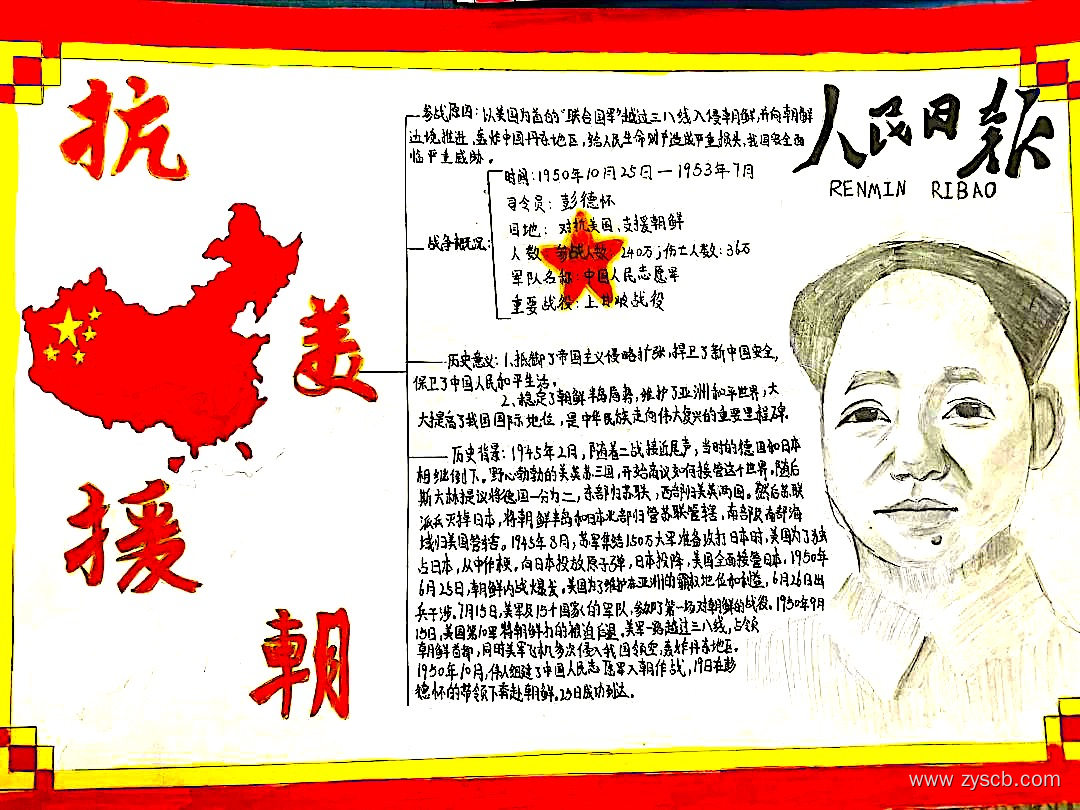 抗
美
援
朝
人民日报
RENMIN RIBAO
参战原因：以美国为首的“联合国军”越过三八线入侵朝鲜，并向朝鲜
边境推进，轰炸中国丹东地区，给人民生命财产造成严重损失，我国安全面
临严重威胁。
战争概况：
时间：1950年10月25日—1953年7月
司令员：彭德怀
目地：对抗美国、支援朝鲜
人数：参战人数：240万；伤亡人数：36万
军队名称：中国人民志愿军
重要战役：上甘岭战役
历史意义：1、抵御了帝国主义侵略扩张，捍卫了新中国安全，
保卫了中国人民和平生活。
2、稳定了朝鲜半岛局势，维护了亚洲和平世界，大
大提高了我国国际地位，是中华民族走向伟大复兴的重要里程碑。
历史背景：1945年2月，随着二战接近尾声，当时的德国和日本
相继倒下。野心勃勃的美英苏三国，开始商议如何接管这个世界。随后
斯大林提议将德国一分为二，东部归苏联，西部归美英两国。然后苏联
派兵灭掉日本，将朝鲜半岛和日本北部归管苏联管辖，南部及南部海
域归美国管辖。1945年8月，苏军集结150万大军准备攻打日本时，美国为了独
占日本，从中作梗。向日本投放原子弹，日本投降，美国全面接管日本。1950年
6月25日，朝鲜内战爆发。美国为了维护在亚洲的霸权地位和利益，6月26日出
兵干涉。7月15日，美军及15个国家的军队，参加了第一场对朝鲜的战役。1950年9月
15日，美国第10军将朝鲜力的被迫后退。美军一路越过三八线，占领
朝鲜首都，同时美军飞机多次侵入我国领空，轰炸丹东地区。
1950年10月，伟人组建了中国人民志愿军入朝作战，19日在彭
德怀的带领下奔赴朝鲜。25日成功到达。
www.zyscb.com